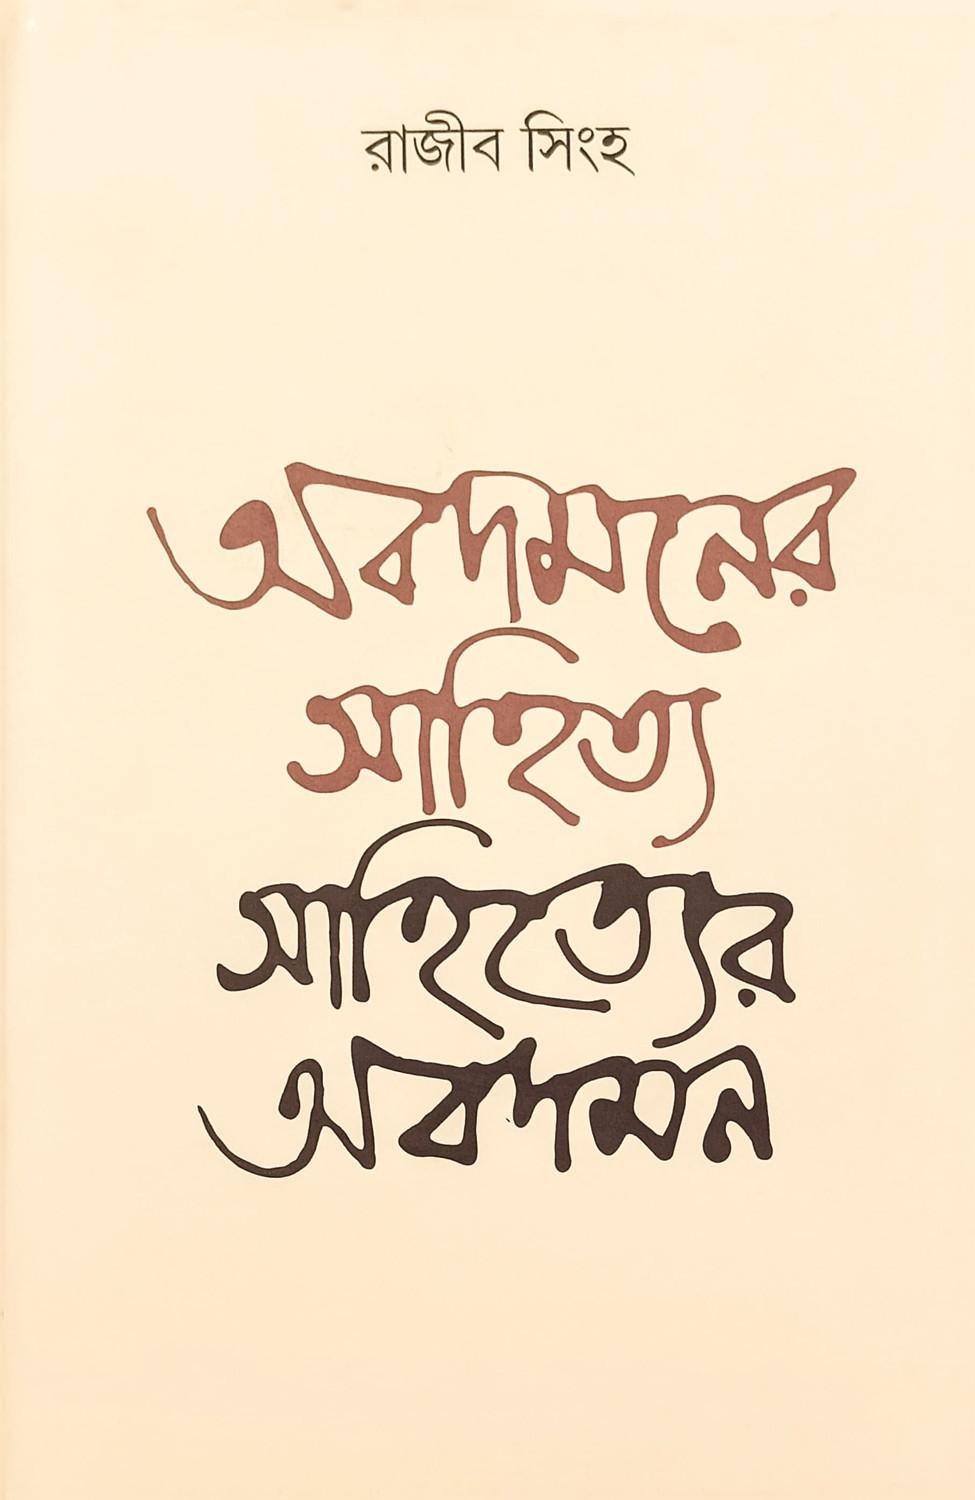 রাজীব সিংহ
অবদমনের
সাহিত্য
সাহিত্যের
অবদমন